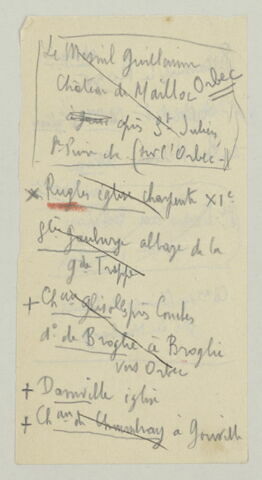 Le Mesnil Guillaume
Château de Mailloc Orbec
après St Julien
St Pierre de (sur l'Orbec -)
x Rugles église charpente XIe
Ste Gauburge abbaye de la
gde Trappe
+ Chau Glisolles près Conches
do de Broglie à Broglie
vers Orbec
+ Damville église
+ Chau de Chambray à Gouville